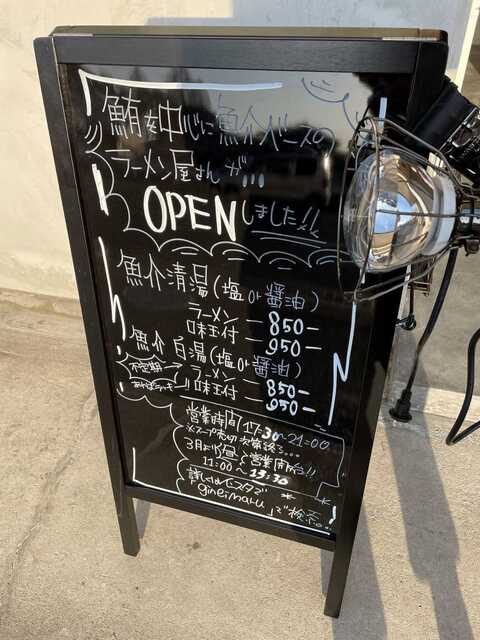 鮪を中心に魚介ベースの
ラーメン屋さんが...
OPENしました!!
魚介清湯(塩or醤油)
ラーメン — 850-
味玉付 — 950-
魚介白湯(塩or醤油)
不定期
ラーメン — 850-
味玉付 — 950-
営業時間 17:30~21:00
※スープ売切次第終了...
3月より昼も営業開始!!
11:00~13:30
詳しくはインスタで
「gineimaru」で検索...